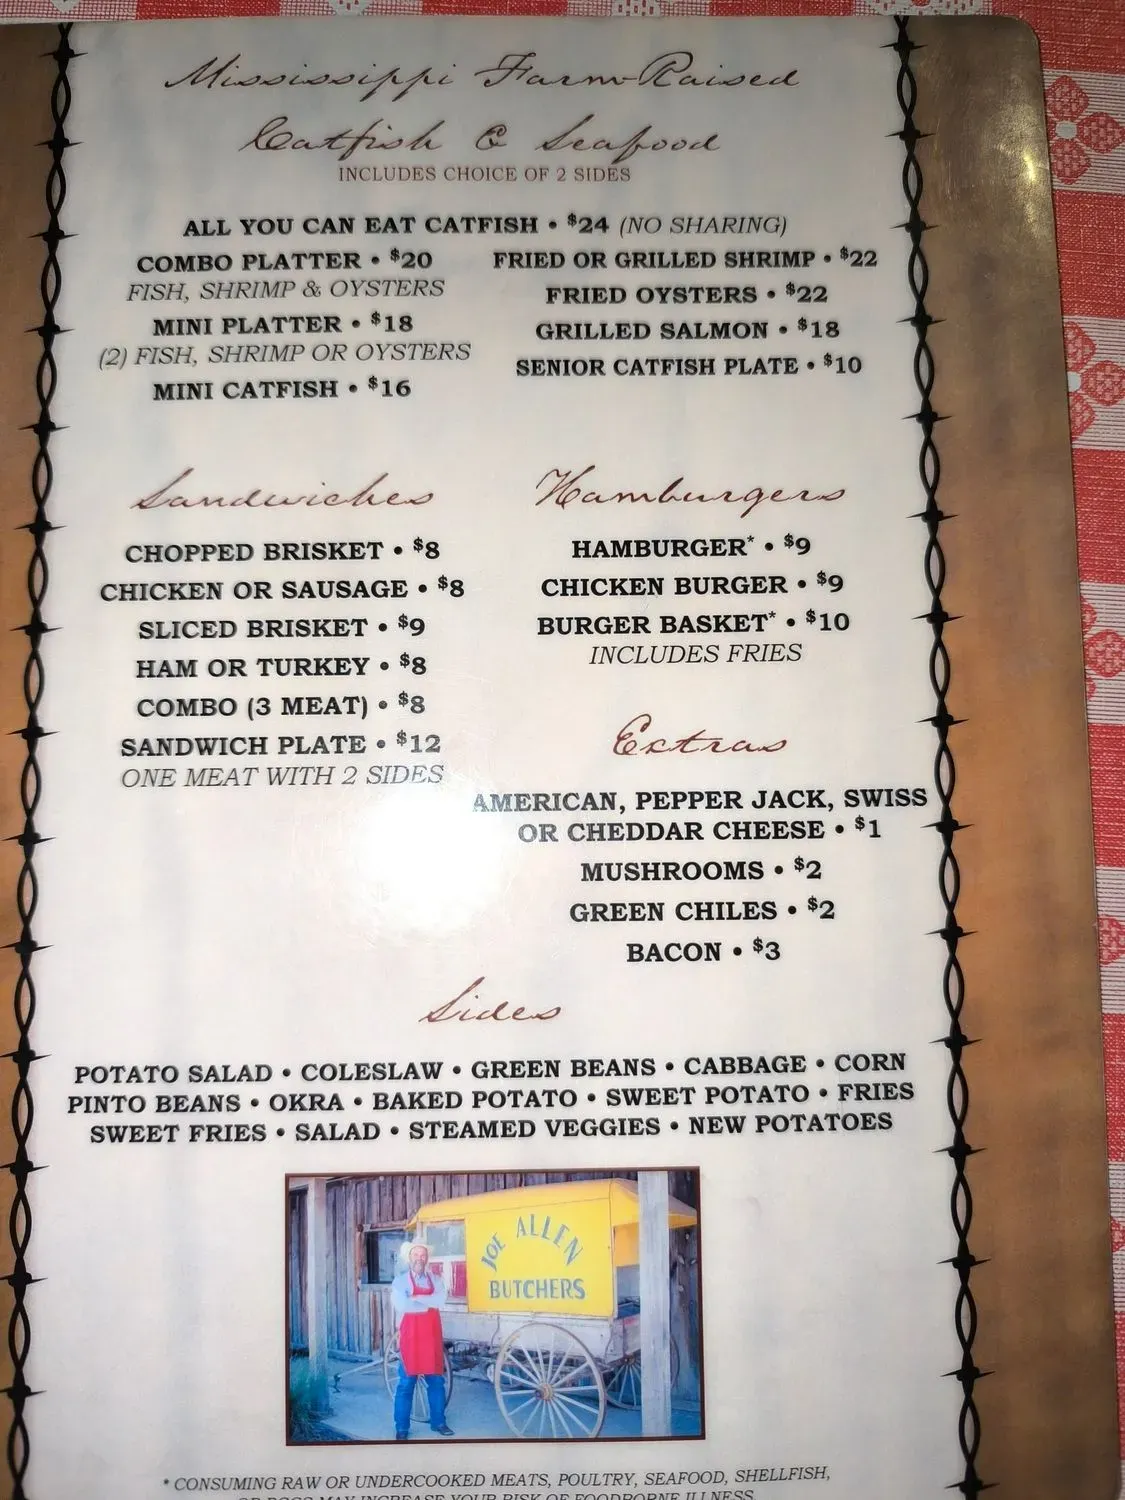 Mississippi Farm-Raised
Catfish & Seafood
INCLUDES CHOICE OF 2 SIDES
ALL YOU CAN EAT CATFISH • $24 (NO SHARING)
COMBO PLATTER • $20
FISH, SHRIMP & OYSTERS
MINI PLATTER • $18
(2) FISH, SHRIMP OR OYSTERS
MINI CATFISH • $16
FRIED OR GRILLED SHRIMP • $22
FRIED OYSTERS • $22
GRILLED SALMON • $18
SENIOR CATFISH PLATE • $10
Sandwiches
CHOPPED BRISKET • $8
CHICKEN OR SAUSAGE • $8
SLICED BRISKET • $9
HAM OR TURKEY • $8
COMBO (3 MEAT) • $8
SANDWICH PLATE • $12
ONE MEAT WITH 2 SIDES
Hamburgers
HAMBURGER* • $9
CHICKEN BURGER • $9
BURGER BASKET* • $10
INCLUDES FRIES
Extras
AMERICAN, PEPPER JACK, SWISS
OR CHEDDAR CHEESE • $1
MUSHROOMS • $2
GREEN CHILES • $2
BACON • $3
Sides
POTATO SALAD • COLESLAW • GREEN BEANS • CABBAGE • CORN
PINTO BEANS • OKRA • BAKED POTATO • SWEET POTATO • FRIES
SWEET FRIES • SALAD • STEAMED VEGGIES • NEW POTATOES
JOE ALLEN
BUTCHERS
* CONSUMING RAW OR UNDERCOOKED MEATS, POULTRY, SEAFOOD, SHELLFISH,
OR EGGS MAY INCREASE YOUR RISK OF FOODBORNE ILLNESS.